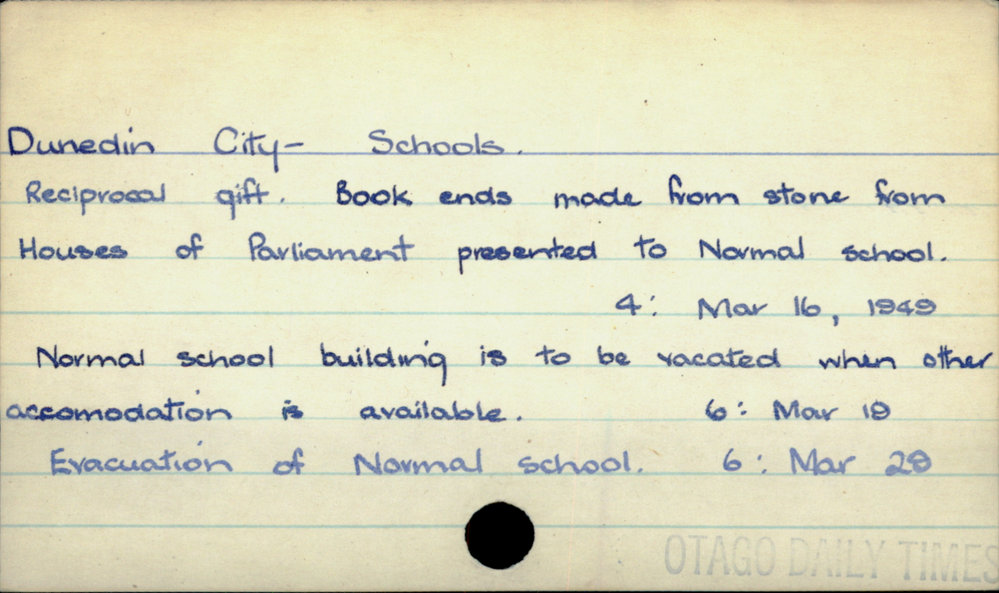 Dunedin City- Schools.
Reciprocal gift. Book ends made from stone from
Houses of Parliament presented to Normal school.
4: Mar 16, 1949
Normal school building is to be vacated when other
accomodation is available. 6: Mar 19
Evacuation of Normal school. 6: Mar 29
OTAGO DAILY TIMES